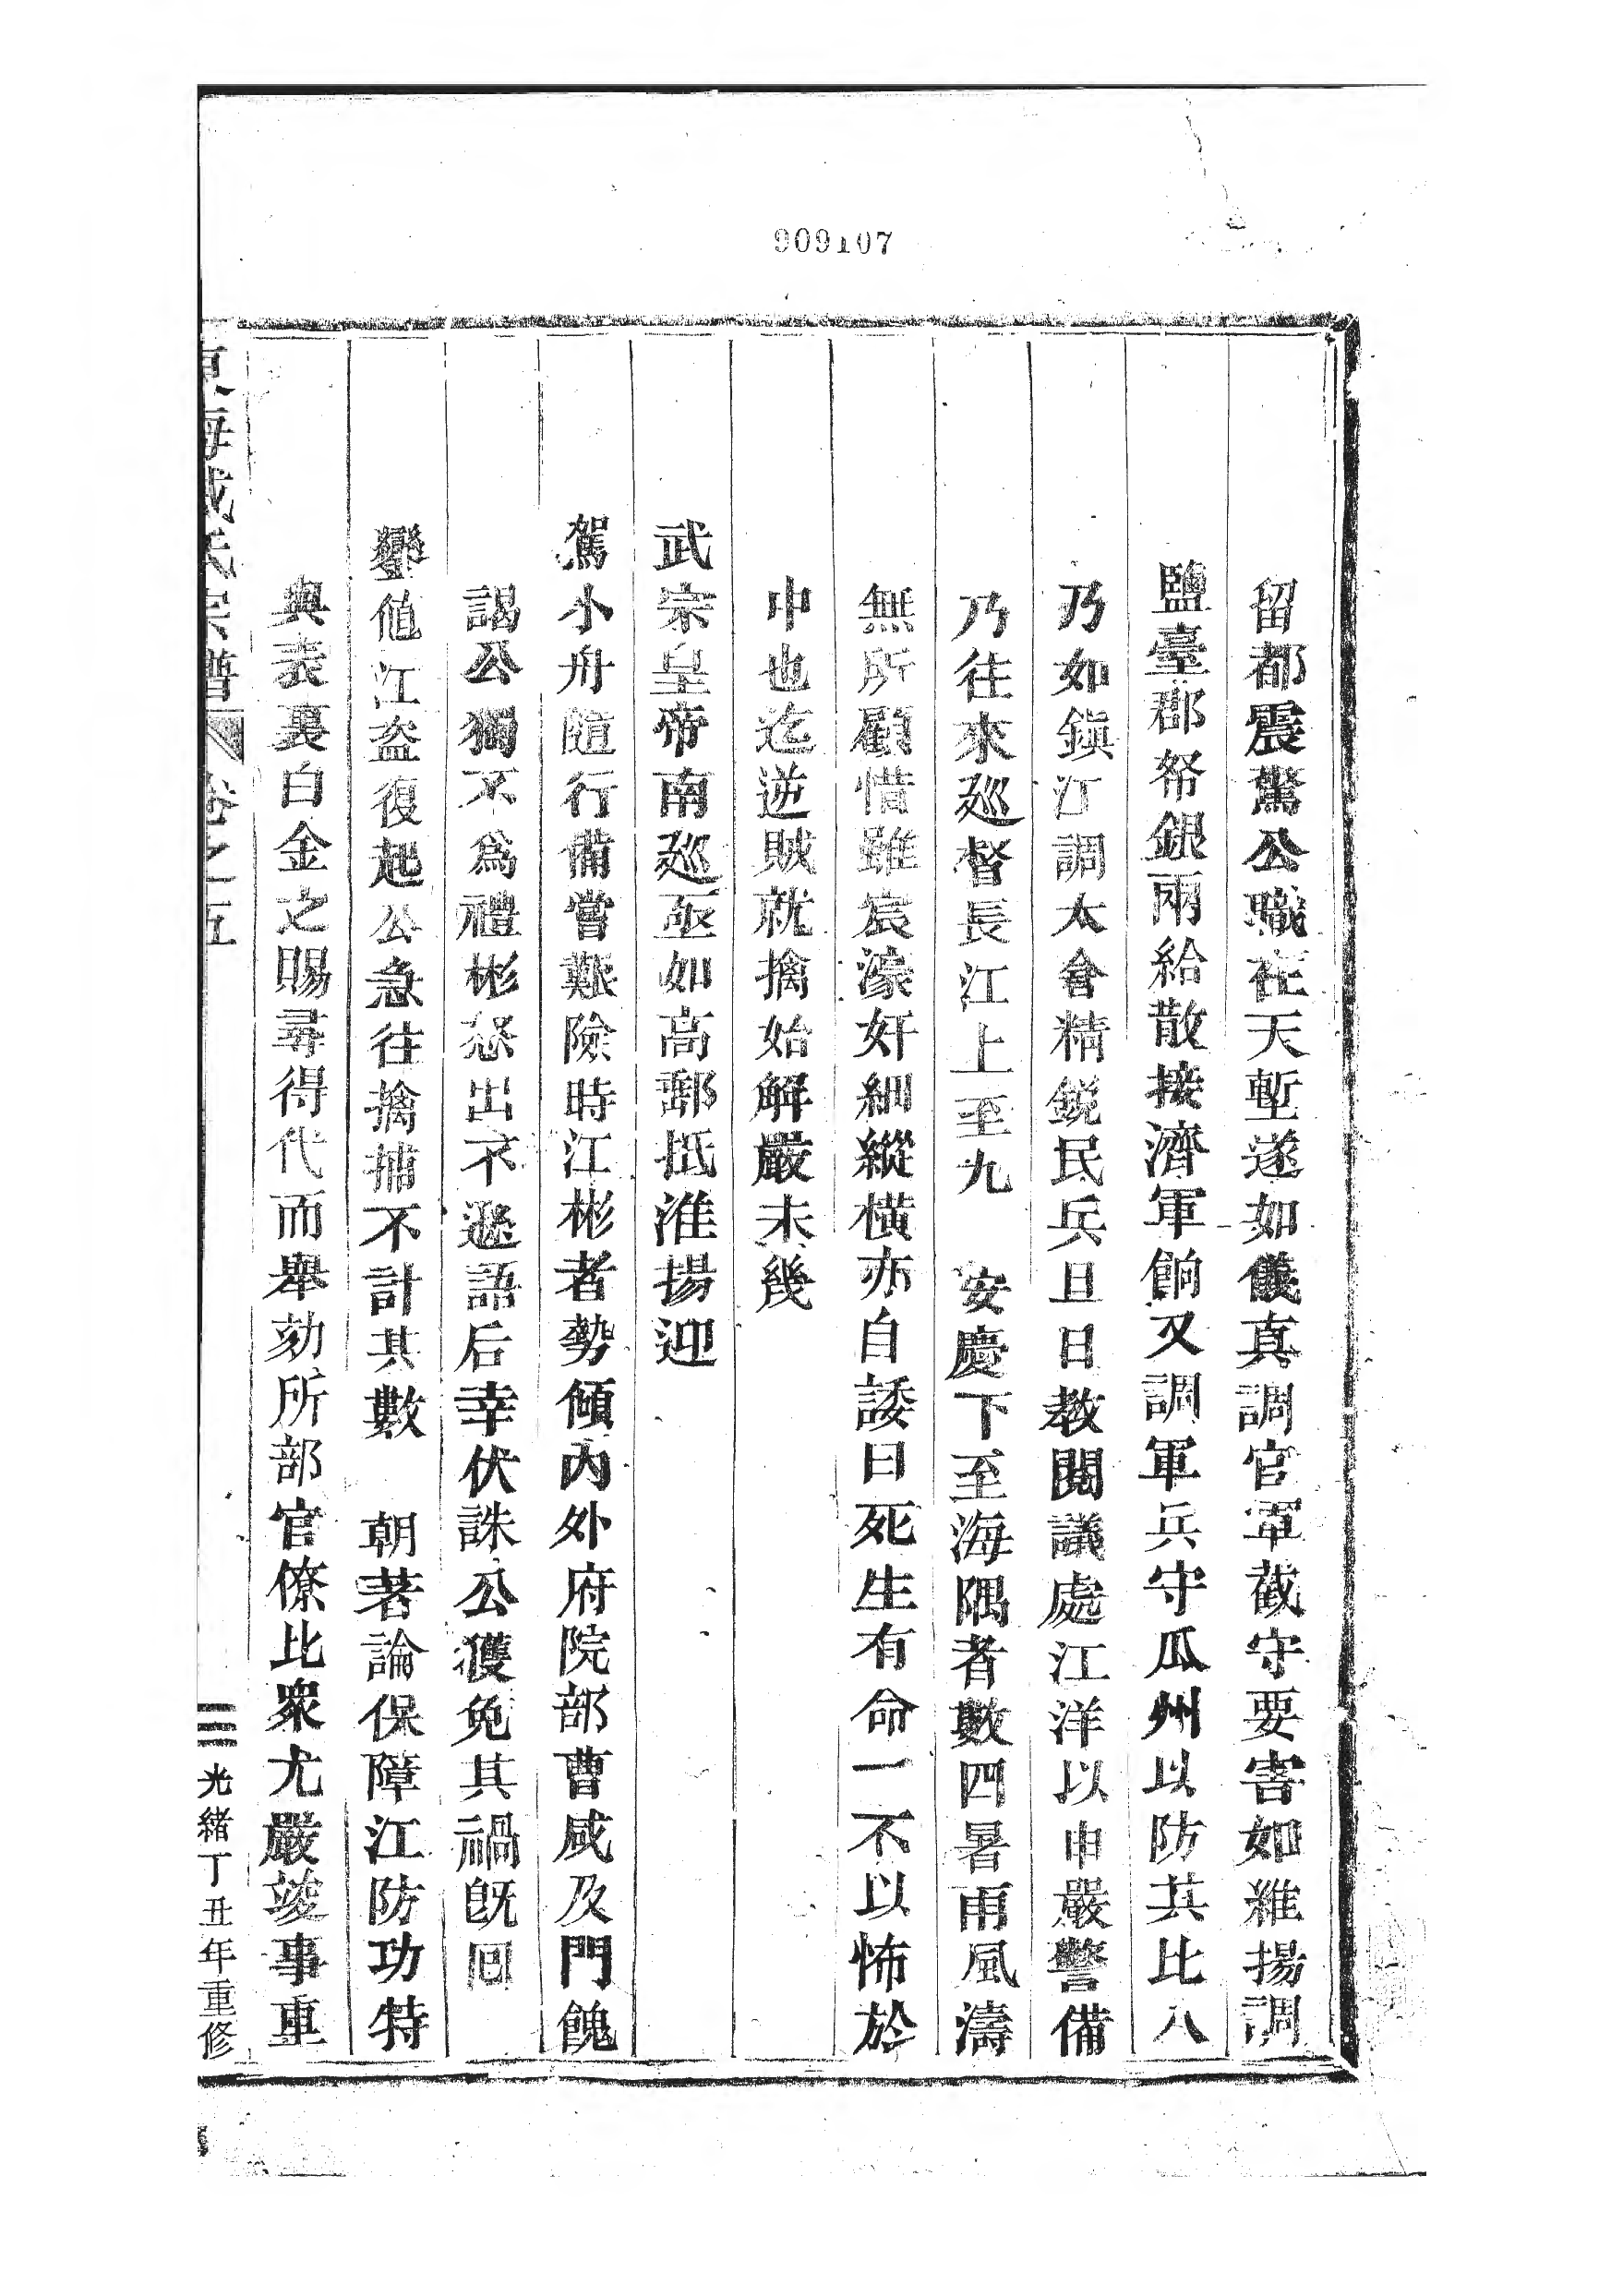 909107
留都震驚公職在天塹遂如儀真調官軍截守要害如維揚調
鹽臺郡帑銀兩給散接濟軍餉又調軍兵守瓜州以防其比八
乃如鎭江調太會精鋭民兵旦日教閱議處江洋以申嚴警備
乃往來廵督長江上至九 安慶下至海隅者數四暑雨風濤
無所顧惜雖宸濠奸細縱橫亦自諉曰死生有命一不以怖於
中也迄逆賊就擒始解嚴未幾
武宗皇帝南廵亟如高郵抵淮揚迎
駕小舟隨行備嘗艱險時江彬者勢傾內外府院部曹咸及門餽
謁公獨不爲禮彬怒出不遜語后幸伏誅公獲免其禍旣囘
鑾値江盜復起公急往擒捕不計其數 朝著論保障江防功特
典表裏白金之賜尋得代而舉劾所部官僚比衆尤嚴竣事重
東海成氏宗譜 卷之五 三 光緒丁丑年重修